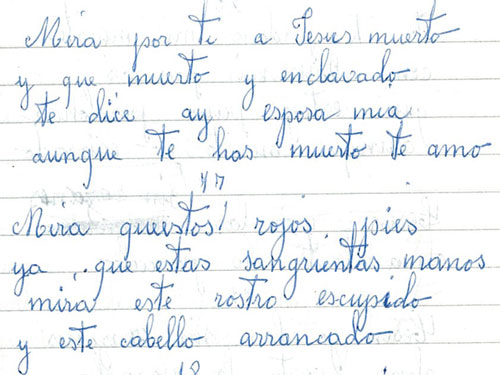 Mira por ti a Jesus muerto
y que muerto y enclavado
te dice ay esposa mia
aunque te has muerto te amo
17
Mira questos rojos pies
ya que estas sangrientas manos
mira este rostro escupido
y este cabello arrancado
18